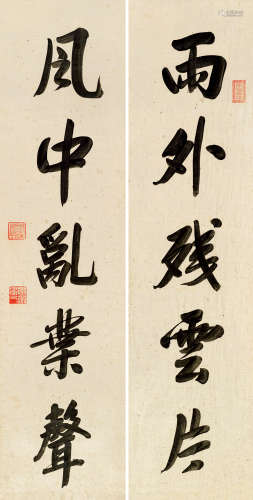 雨外残雲片
風中亂葉聲